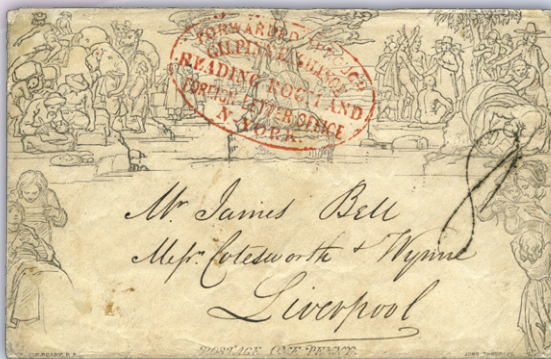 FORWARDED THROUGH
GILPIN'S EXCHANGE
READING ROOM AND
FOREIGN LETTER OFFICE
N. YORK.
Mr. James Bell
Messrs. Cotesworth & Wynne
Liverpool